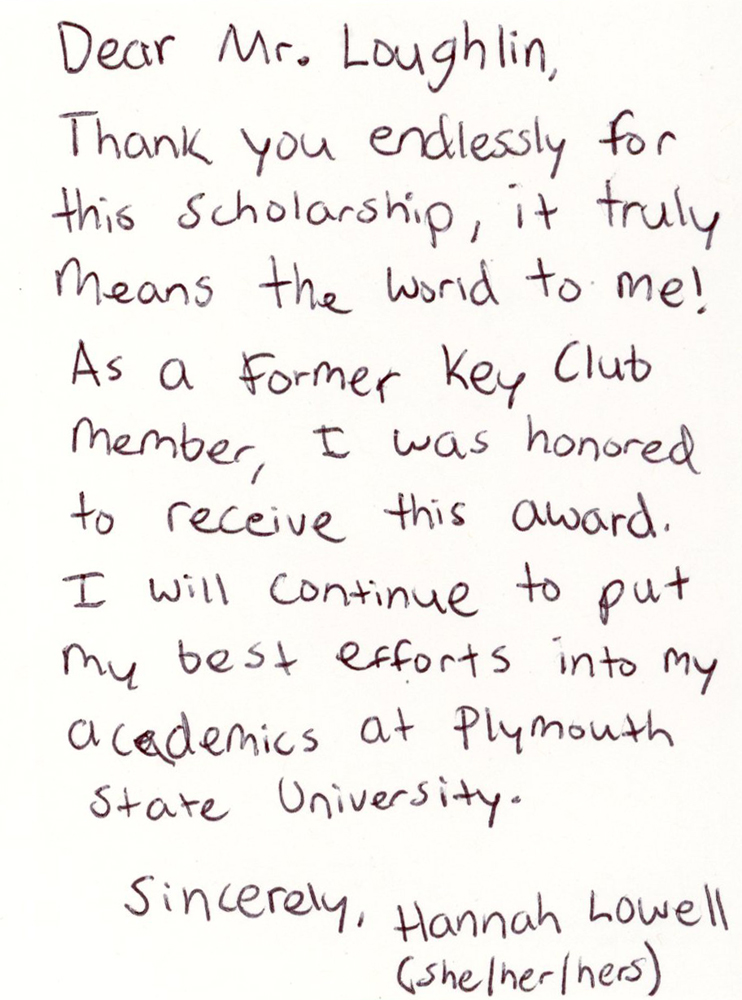 Dear Mr. Loughlin,
Thank you endlessly for
this scholarship, it truly
means the world to me!
As a former Key Club
member, I was honored
to receive this award.
I will continue to put
my best efforts into my
academics at Plymouth
State University.
Sincerely, Hannah Lowell
(she/her/hers)